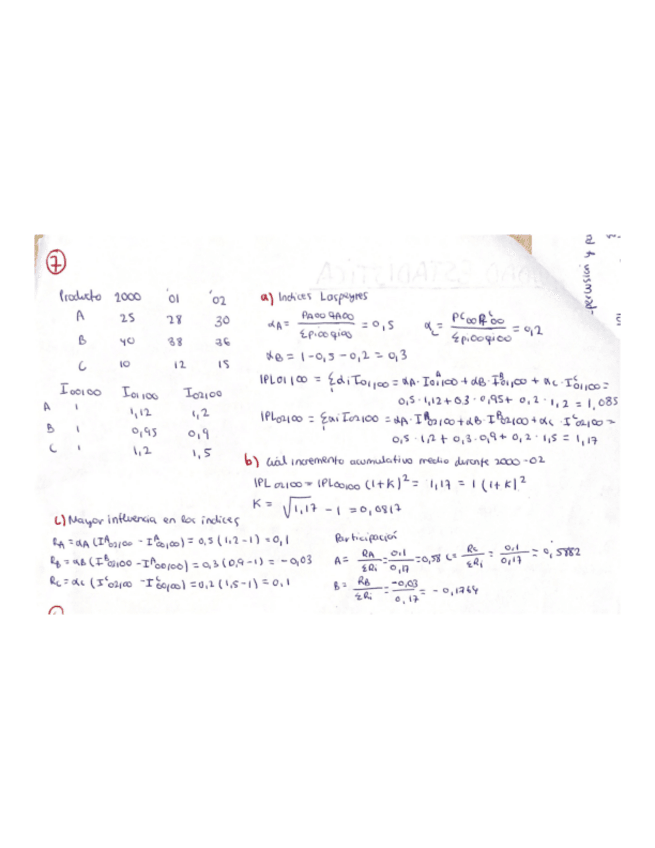 7
Producto 2000 '01 '02
A 25 28 30
B 40 38 36
C 10 12 15
I00100 I01100 I02100
A 1 1,12 1,2
B 1 0,95 0,9
C 1 1,2 1,5
a) Indices Laspeyres
αA = PA00 qA00 / Σpi00qi00 = 0,5 αC = PC00 / Σpi00qi00 = 0,2
αB = 1-0,5-0,2 = 0,3
IPL01100 = Σαi I01100 = αA · I^A01100 + αB · I^B01100 + αC · I^C01100 =
0,5 · 1,12 + 0,3 · 0,95 + 0,2 · 1,2 = 1,085
IPL02100 = Σαi I02100 = αA · I^A02100 + αB · I^B02100 + αC · I^C02100 =
0,5 · 1,2 + 0,3 · 0,9 + 0,2 · 1,5 = 1,17
b) Cuál incremento acumulativo medio durante 2000-02
IPL02100 = IPL00100 (1+K)² = 1,17 = 1 (1+K)²
K = √1,17 - 1 = 0,0817
c) Mayor influencia en los indices
RA = αA (I^A02100 - I^A00100) = 0,5 (1,2-1) = 0,1
RB = αB (I^B02100 - I^B00100) = 0,3 (0,9-1) = -0,03
RC = αC (I^C02100 - I^C00100) = 0,2 (1,5-1) = 0,1
Participación
A = RA / ΣRi = 0,1 / 0,17 = 0,58 C = RC / ΣRi = 0,1 / 0,17 = 0,5882
B = RB / ΣRi = -0,03 / 0,17 = -0,1764